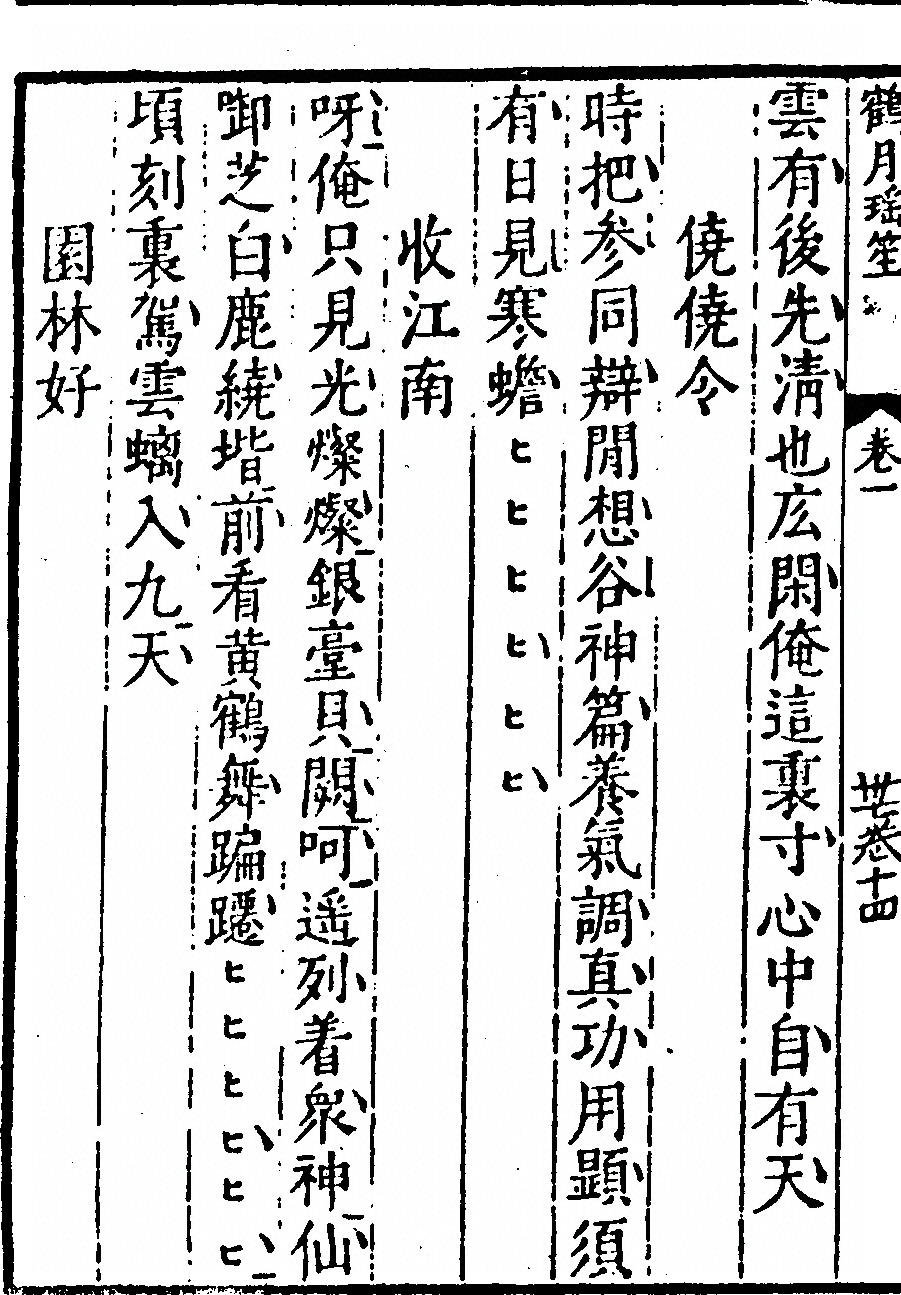 鶴月瑶笙
卷一
卅七卷十四
雲有後先清也庅閑俺這裏寸心中自有天
僥僥令
時把参同辯閒想谷神篇養氣調真功用顯須
有日見寒蟾〻〻〻〻〻〻
收江南
呀俺只見光燦燦銀臺貝闕呵遥列着衆神仙
啣芝白鹿繞堦前看黄鶴舞蹁躚〻〻〻〻〻〻
頃刻裏駕雲螭入九天
園林好